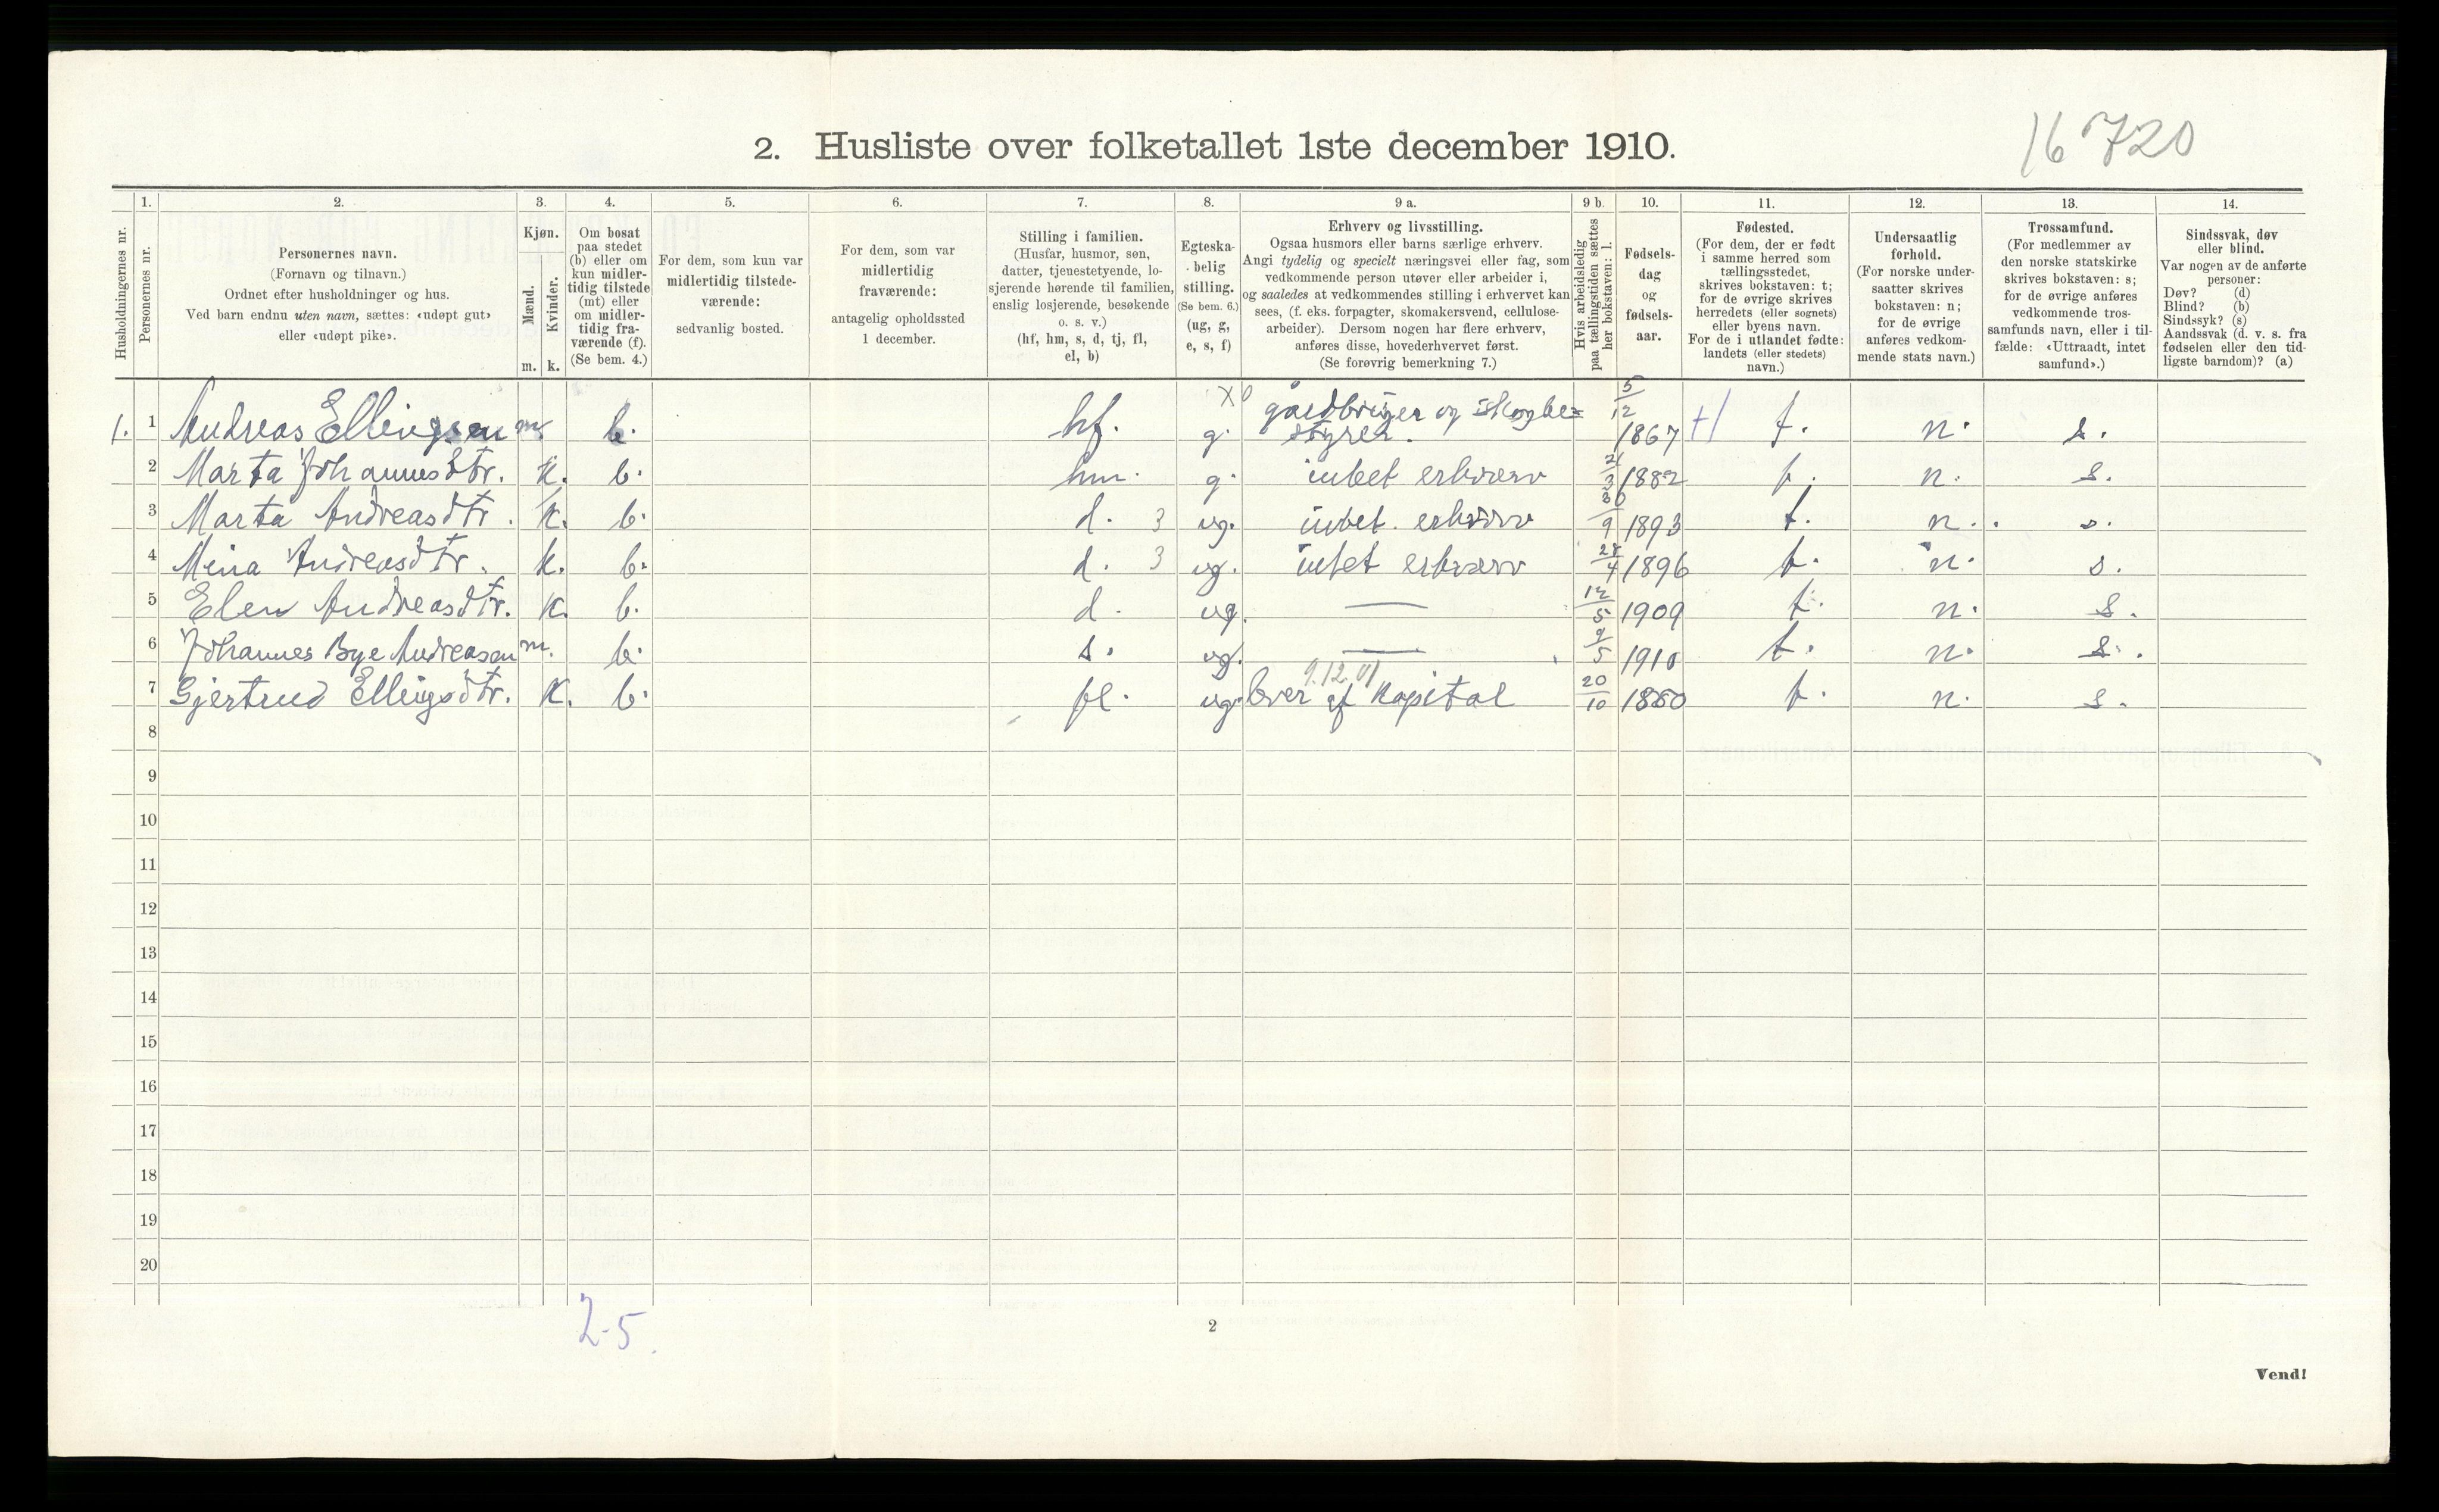 16 720
2. Husliste over folketallet 1ste december 1910.
Husholdningernes nr.
1. Personernes nr.
2. Personernes navn.
(Fornavn og tilnavn.)
Ordnet efter husholdninger og hus.
Ved barn endnu uten navn, sættes: «udøpt gut»
eller «udøpt pike».
3. Kjøn.
Mænd. m.
Kvinder. k.
4. Om bosat
paa stedet
(b) eller om
kun midler-
tidig tilstede
(mt) eller
om midler-
tidig fra-
værende (f).
(Se bem. 4.)
5. For dem, som kun var
midlertidig tilstede-
værende:
sedvanlig bosted.
6. For dem, som var
midlertidig
fraværende:
antagelig opholdssted
1 december.
7. Stilling i familien.
(Husfar, husmor, søn,
datter, tjenestetyende, lo-
sjerende hørende til familien,
enslig losjerende, besøkende
o. s. v.)
(hf, hm, s, d, tj, fl,
el, b)
8. Egteska-
belig
stilling.
(Se bem. 6.)
(ug, g,
e, s, f)
9 a. Erhverv og livsstilling.
Ogsaa husmors eller barns særlige erhverv.
Angi tydelig og specielt næringsvei eller fag, som
vedkommende person utøver eller arbeider i,
og saaledes at vedkommendes stilling i erhvervet kan
sees, (f. eks. forpagter, skomakersvend, cellulose-
arbeider). Dersom nogen har flere erhverv,
anføres disse, hovederhvervet først.
(Se forøvrig bemerkning 7.)
9 b. Hvis arbeidsledig
paa tællingstiden sættes
her bokstaven: l.
10. Fødsels-
dag
og
fødsels-
aar.
11. Fødested.
(For dem, der er født
i samme herred som
tællingsstedet,
skrives bokstaven: t;
for de øvrige skrives
herredets (eller sognets)
eller byens navn.
For de i utlandet fødte:
landets (eller stedets)
navn.)
12. Undersaatlig
forhold.
(For norske under-
saatter skrives
bokstaven: n;
for de øvrige
anføres vedkom-
mende stats navn.)
13. Trossamfund.
(For medlemmer av
den norske statskirke
skrives bokstaven: s;
for de øvrige anføres
vedkommende tros-
samfunds navn, eller i til-
fælde: «Uttraadt, intet
samfund».)
14. Sindssvak, døv
eller blind.
Var nogen av de anførte
personer:
Døv? (d)
Blind? (b)
Sindssyk? (s)
Aandssvak (d. v. s. fra
fødselen eller den tid-
ligste barndom)? (a)
1. 1 Andreas Ellingsen m. b. hf. g. X0 gaardbruger og skogbe=
styrer. 5/12 1867 t. n. s.
2 Marta Johannesdtr. K. b. hm. g. intet erhverv 21/3 1882 t. n. s.
3 Marta Andreasdtr. K. b. d. 3 ug. intet erhverv 30/9 1893 t. n. s.
4 Mina Andreasdtr. K. b. d. 3 ug. intet erhverv 28/4 1896 t. n. s.
5 Elen Andreasdtr. K. b. d. ug. — 12/5 1909 t. n. s.
6 Johannes Bye Andreasen m. b. s. ug. — 9/5 1910 t. n. s.
7 Gjertrud Ellingsdtr. K. b. fl. ug. lever af Kapital 20/10 1850 t. n. s.
8
9
10
11
12
13
14
15
16
17
18
19
20
2-5.
2
Vend!